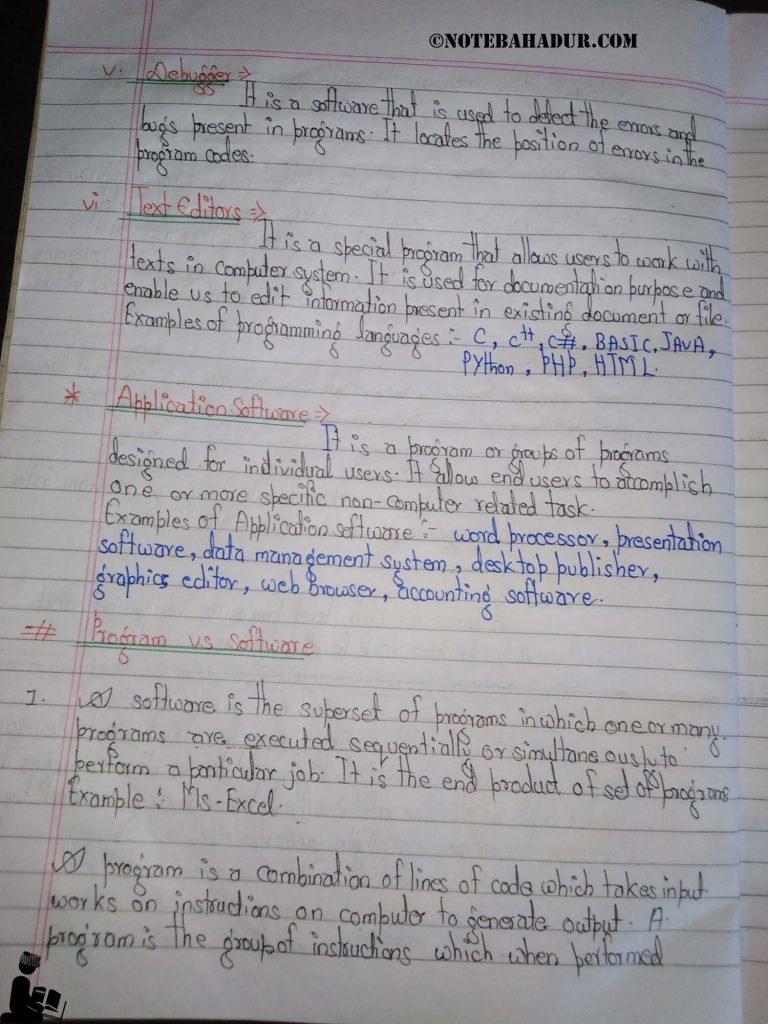 ©NOTEBAHADUR.COM
v. Debugger ⇒
It is a software that is used to detect the errors and
bugs present in programs. It locates the position of errors in the
program codes.
vi Text Editors ⇒
It is a special program that allows users to work with
texts in computer system. It is used for documentation purpose and
enable us to edit information present in existing document or file.
Examples of programming languages :- C, C++, C#, BASIC, JAVA,
PYthon, PHP, HTML.
* Application Software ⇒
It is a program or groups of programs
designed for individual users. It allow end users to accomplish
one or more specific non-computer related task.
Examples of Application software :- word processor, presentation
software, data management system, desktop publisher,
graphics editor, web browser, accounting software.
# Program vs Software
1. software is the superset of programs in which one or many
programs are executed sequentially or simultaneously to
perform a particular job. It is the end product of set of programs
Example : Ms-Excel.
program is a combination of lines of code which takes input
works on instructions on computer to generate output. A
program is the group of instructions which when performed